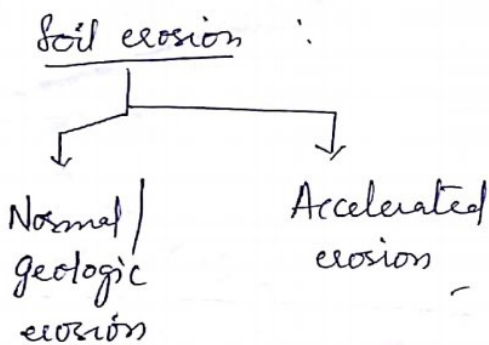 Soil erosion :
Normal/
geologic
erosion
Accelerated
erosion